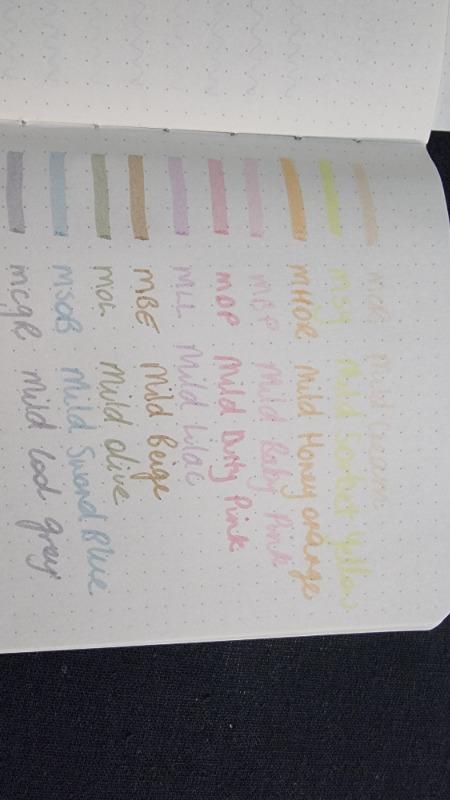 MCR Mild Cream
MSY Mild Sorbet Yellow
MHOR Mild Honey orange
MBP Mild Baby Pink
MDP Mild Dusty Pink
MLL Mild Lilac
MBE Mild Beige
MOL Mild Olive
MSOB Mild Sword Blue
MCGR Mild Cool grey